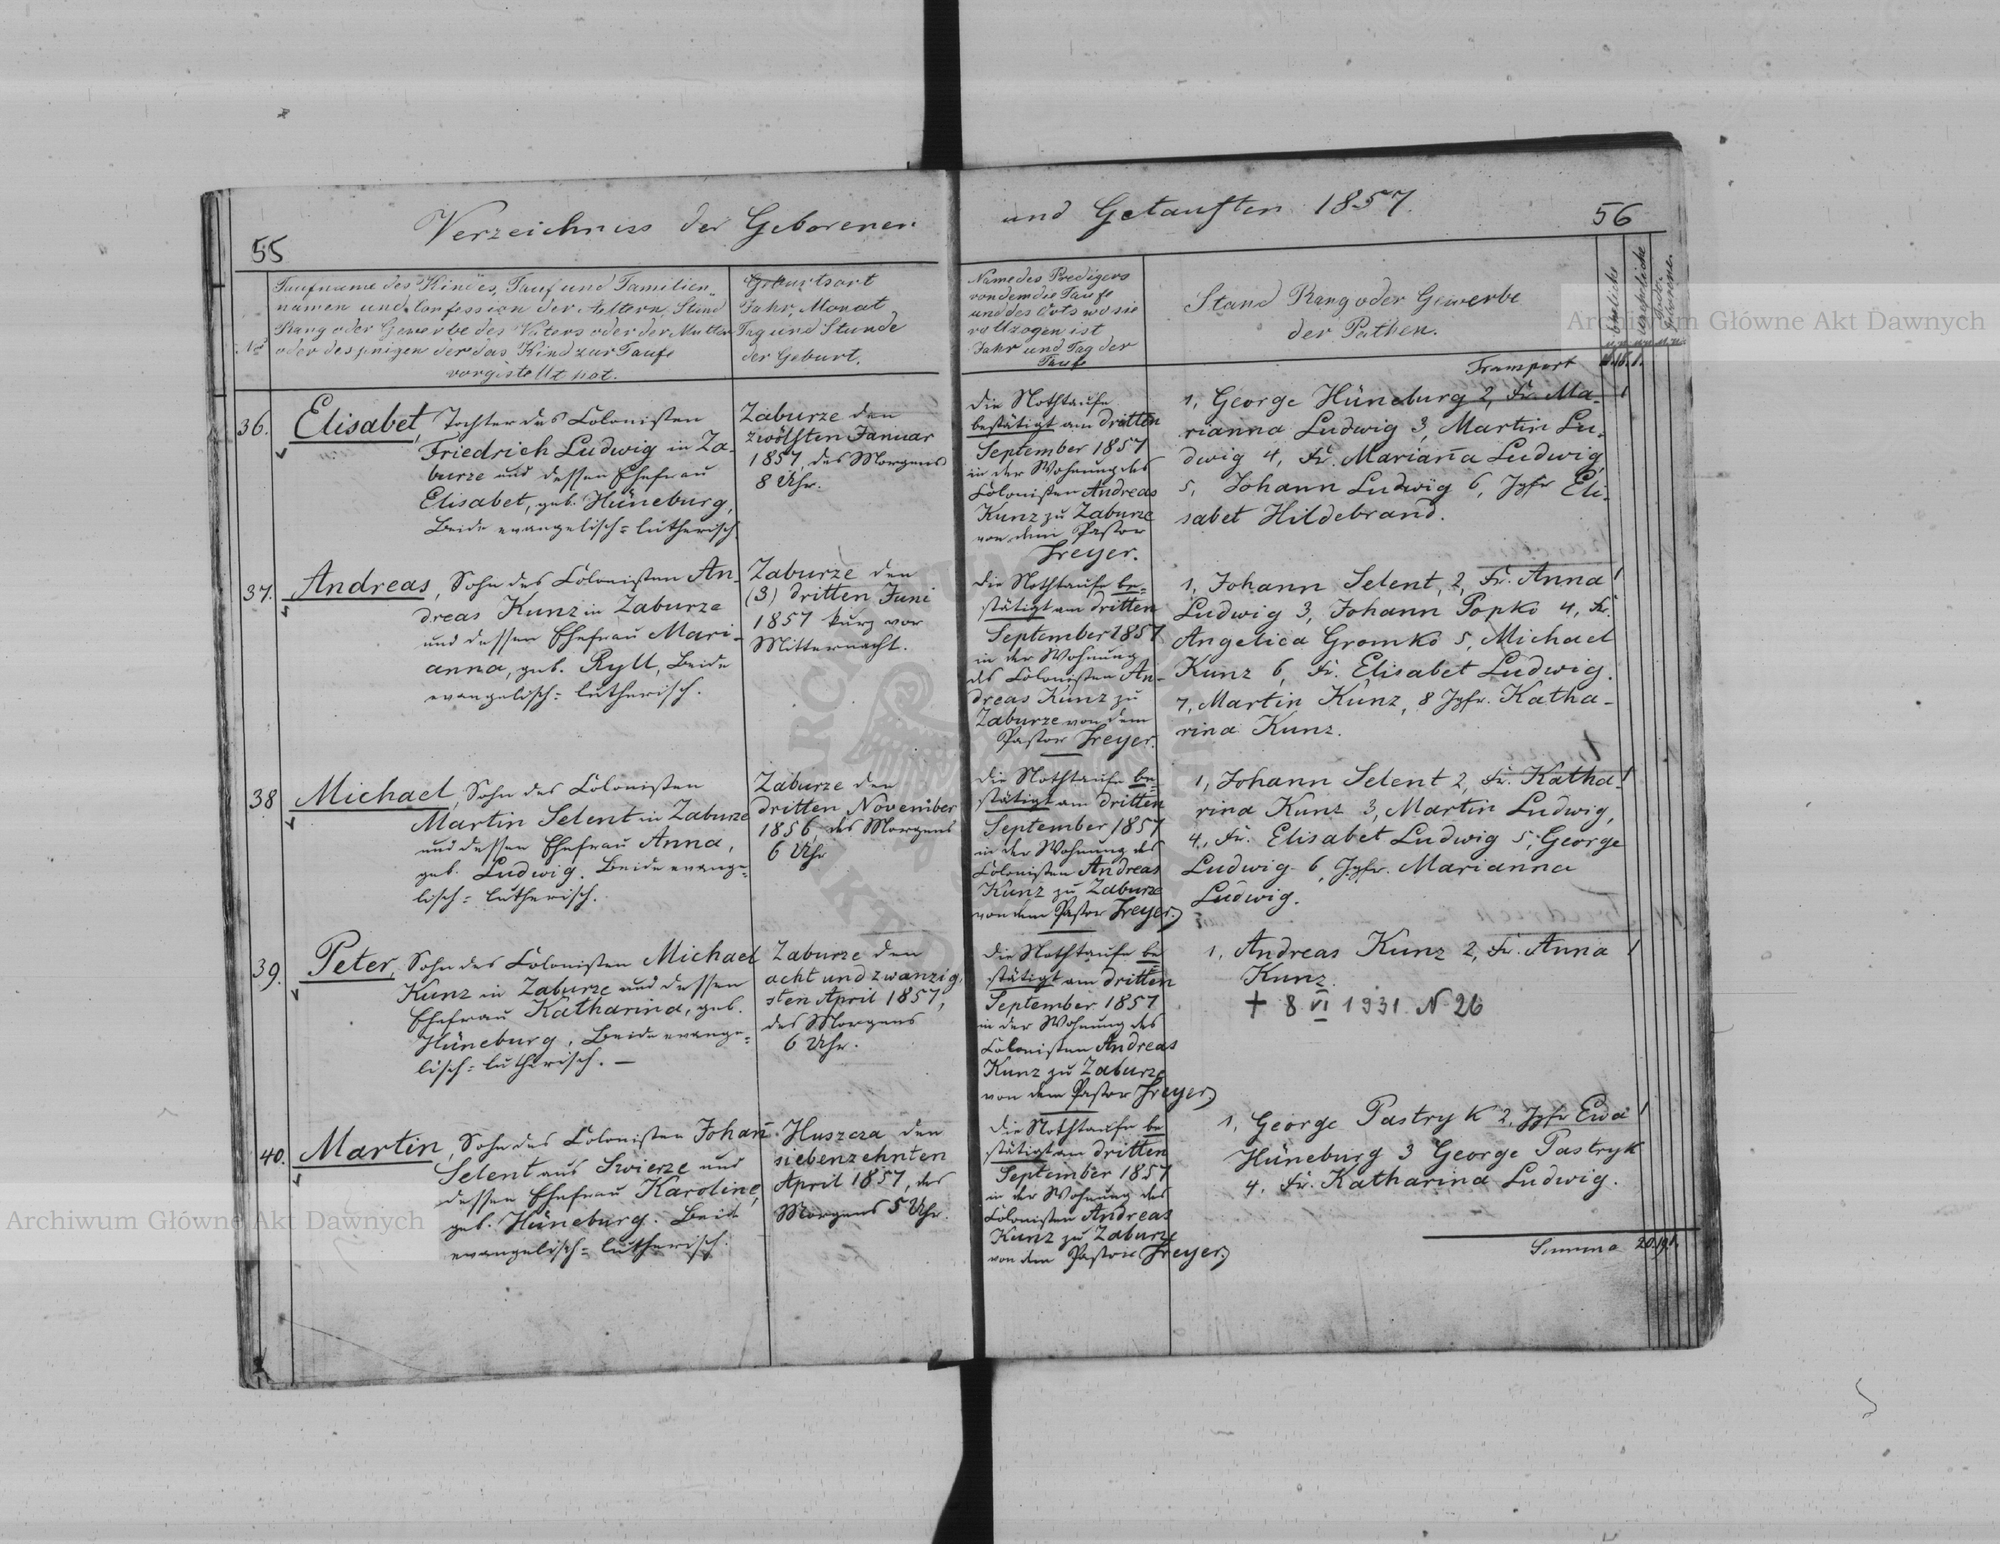 55
Verzeichniss der Geborenen
und Getauften 1857.
56
No
Taufname des Kindes, Tauf und Familien-
namen und Confession der Aeltern, Stand
Rang oder Gewerbe des Vaters oder der Mutter
oder desjenigen der das Kind zur Taufe
vorgestellt hat.
Geburtsort
Jahr, Monat
Tag und Stunde
der Geburt.
Name des Predigers
von dem die Taufe
und des Orts wo sie
vollzogen ist
Jahr und Tag der
Taufe
Stand Rang oder Gewerbe
der Pathen.
eheliche
uneheliche
Todtgeborene
Transport
36.
Elisabet, Tochter des Colonisten
Friedrich Ludwig in Za-
burze und dessen Ehefrau
Elisabet, geb. Hüneburg,
Beide evangelisch=lutherisch
Zaburze den
zwölften Januar
1857, des Morgens
8 Uhr.
Die Nothtaufe
bestätigt am dritten
September 1857
in der Wohnung des
Colonisten Andreas
Kunz zu Zaburze
von dem Pastor
Freyer.
1, George Hüneburg 2, Fr. Ma-
rianna Ludwig 3, Martin Lu-
dwig 4, Fr. Marianna Ludwig,
5, Johann Ludwig 6, Jgfr Eli-
sabet Hildebrand.
37.
Andreas, Sohn des Colonisten An-
dreas Kunz in Zaburze
und dessen Ehefrau Mari-
anna, geb. Ryll, Beide
evangelisch=lutherisch.
Zaburze den
(3) dritten Juni
1857 kurz vor
Mitternacht.
Die Nothtaufe be-
stätigt am dritten
September 1857
in der Wohnung
des Colonisten An-
dreas Kunz zu
Zaburze von dem
Pastor Freyer.
1, Johann Selent, 2, Fr. Anna
Ludwig 3, Johann Popko 4, Fr.
Angelica Gromko 5, Michael
Kunz 6, Fr. Elisabet Ludwig.
7, Martin Kunz, 8 Jgfr. Katha-
rina Kunz.
38
Michael, Sohn des Colonisten
Martin Selent in Zaburze
und dessen Ehefrau Anna,
geb. Ludwig. Beide evange-
lisch=lutherisch.
Zaburze den
dritten November
1856, des Morgens
6 Uhr
Die Nothtaufe be-
stätigt am dritten
September 1857
in der Wohnung des
Colonisten Andreas
Kunz zu Zaburze
von dem Pastor Freyer.
1, Johann Selent 2, Fr. Katha-
rina Kunz 3, Martin Ludwig,
4, Fr. Elisabet Ludwig 5, George
Ludwig 6, Jgfr. Marianna
Ludwig.
39.
Peter, Sohn des Colonisten Michael
Kunz in Zaburze und dessen
Ehefrau Katharina, geb.
Hüneburg, Beide evange=
lisch=lutherisch. —
Zaburze den
acht und zwanzig-
sten April 1857,
des Morgens
6 Uhr.
Die Nothtaufe be
stätigt am dritten
September 1857
in der Wohnung des
Colonisten Andreas
Kunz zu Zaburze
von dem Pastor Freyer
1, Andreas Kunz 2, Fr. Anna
Kunz.
+ 8 VI 1931 N 26
40.
Martin, Sohn des Colonisten Johann
Selent aus Swierze und
dessen Ehefrau Karoline,
geb. Hüneburg. Beide
evangelisch=lutherisch.
Huszcza den
siebenzehnten
April 1857, des
Morgens 5 Uhr.
Die Nothtaufe be
stätigt am dritten
September 1857
in der Wohnung des
Colonisten Andreas
Kunz zu Zaburze
von dem Pastor Freyer.
1, George Pastryk 2, Jgfr Ewa
Hüneburg 3 George Pastryk
4, Fr. Katharina Ludwig.
Summa 20. 19. 1.
Archiwum Główne Akt Dawnych
Archiwum Główne Akt Dawnych